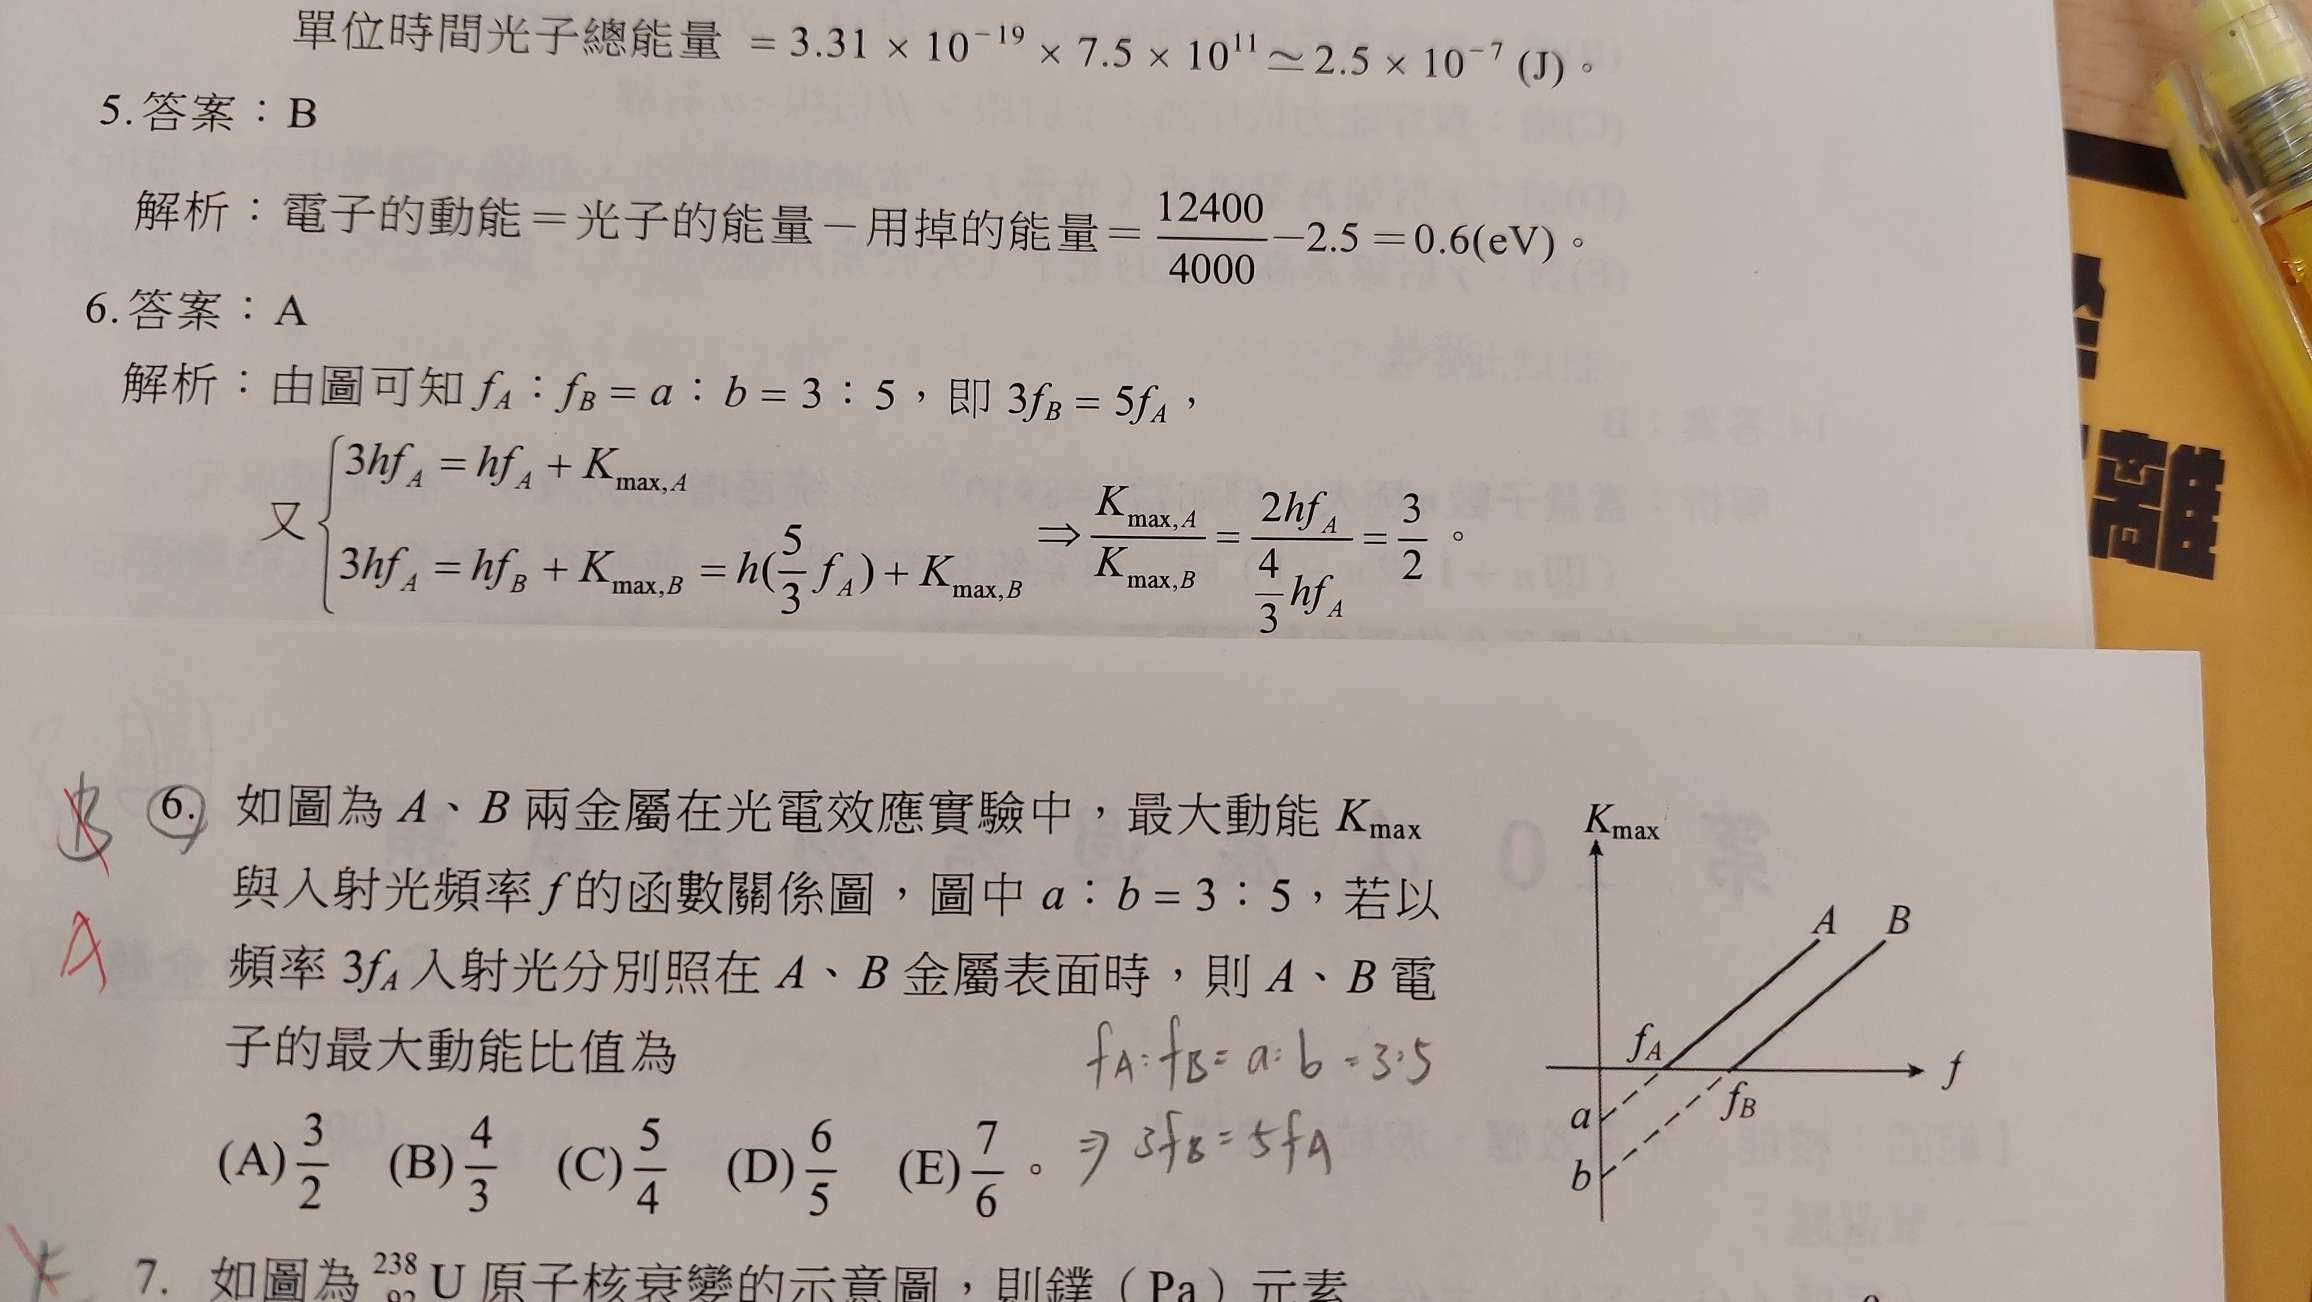 單位時間光子總能量 = 3.31 × 10⁻¹⁹ × 7.5 × 10¹¹ ≃ 2.5 × 10⁻⁷ (J)。
5. 答案：B
解析：電子的動能＝光子的能量－用掉的能量＝12400/4000－2.5＝0.6(eV)。
6. 答案：A
解析：由圖可知 f_A：f_B = a：b = 3：5，即 3f_B = 5f_A，
又 { 3hf_A = hf_A + K_max,A
3hf_A = hf_B + K_max,B = h(5/3 f_A) + K_max,B ⇒ K_max,A/K_max,B = 2hf_A/(4/3 hf_A) = 3/2。
B 6. 如圖為 A、B 兩金屬在光電效應實驗中，最大動能 K_max
與入射光頻率 f 的函數關係圖，圖中 a：b = 3：5，若以
A 頻率 3f_A 入射光分別照在 A、B 金屬表面時，則 A、B 電
子的最大動能比值為
(A) 3/2 (B) 4/3 (C) 5/4 (D) 6/5 (E) 7/6。
f_A : f_B = a : b = 3 : 5
⇒ 3f_B = 5f_A
K_max
A B
f_A f
f_B
a
b
7. 如圖為 ²³⁸₉₂U 原子核衰變的示意圖，則鏷（Pa）元素